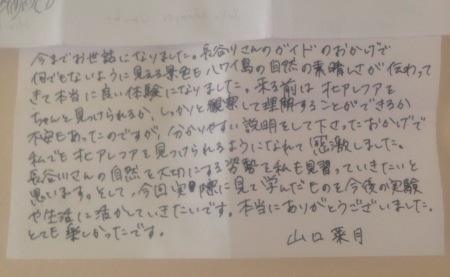 今までお世話になりました。長谷川さんのガイドのおかげで
何でもないように見える景色もハワイ島の自然の素晴しさが伝わって
きて本当に良い体験になりました。来る前はオヒアレフアを
ちゃんと見つけられるか、しっかりと観察して理解することができるか
不安もあったのですが、分かりやすい説明をして下さったおかげで
私でもオヒアレフアを見つけられるようになれて感激しました。
長谷川さんの自然を大切にする姿勢を私も見習っていきたいと
思います。そして、今回実際に見て学んだものを今後の実験
や生活に活かしていきたいです。本当にありがとうございました。
とても楽しかったです。
山口菜月